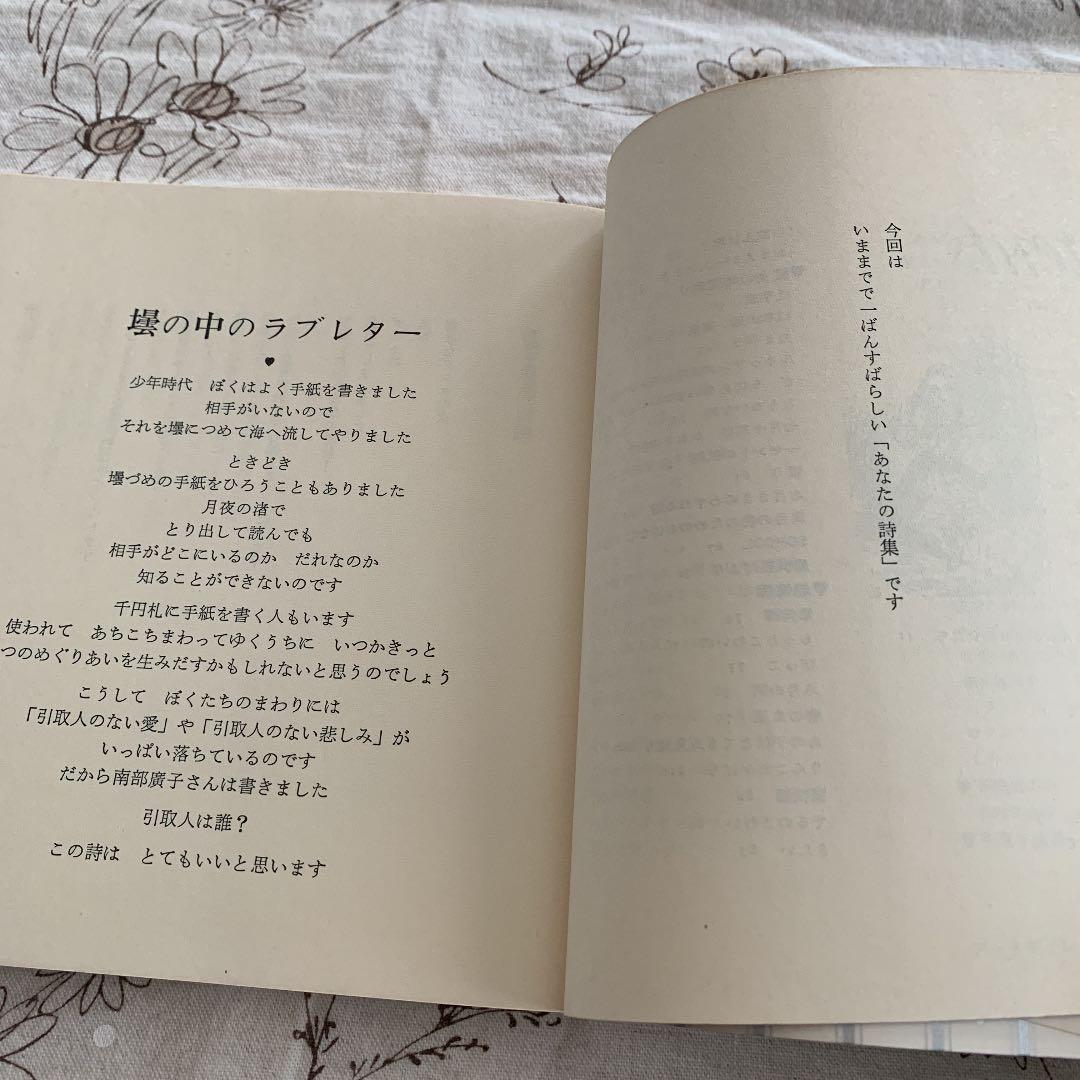 壜の中のラブレター
♥
少年時代　ぼくはよく手紙を書きました
相手がいないので
それを壜につめて海へ流してやりました
ときどき
壜づめの手紙をひろうこともありました
月夜の渚で
とり出して読んでも
相手がどこにいるのか　だれなのか
知ることができないのです
千円札に手紙を書く人もいます
使われて　あちこちまわってゆくうちに　いつかきっと
つのめぐりあいを生みだすかもしれないと思うのでしょう
こうして　ぼくたちのまわりには
「引取人のない愛」や「引取人のない悲しみ」が
いっぱい落ちているのです
だから南部廣子さんは書きました
引取人は誰？
この詩は　とてもいいと思います
今回は
いままでで一ばんすばらしい「あなたの詩集」です